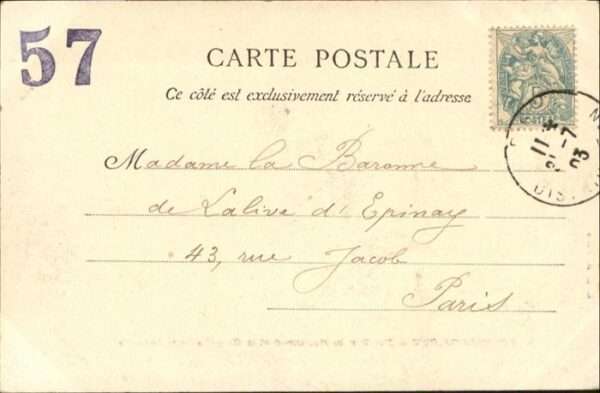 57
CARTE POSTALE
Ce côté est exclusivement réservé à l'adresse
5
POSTES
11
-7
03
DIST
Madame la Baronne
de Lalive d'Epinay
43, rue Jacob
Paris